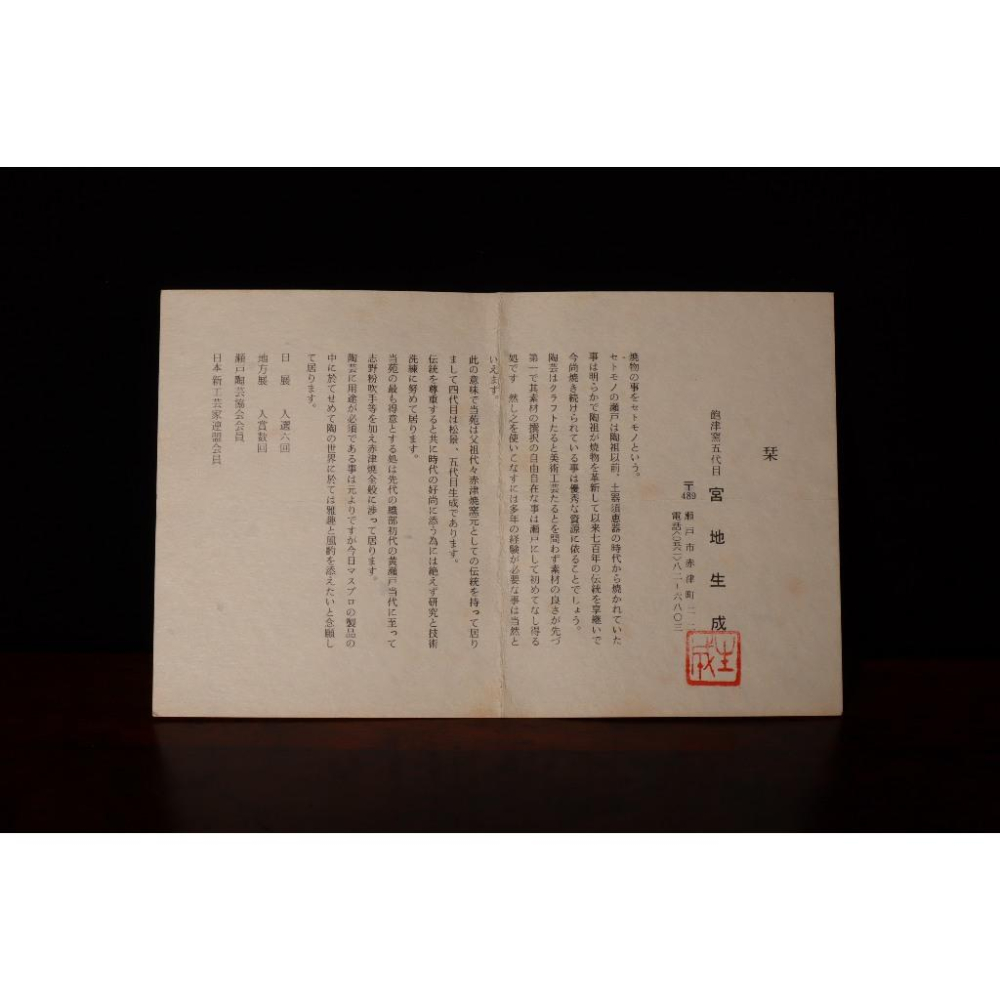 栞
飽津窯五代目 宮地生成
〒489 瀬戸市赤津町二二
電話〈〇五六一〉八二−六八〇三
生成
焼物の事をセトモノという。
セトモノの瀬戸は陶祖以前、土器須恵器の時代から焼かれていた
事は明らかで陶祖が焼物を革新して以来七百年の伝統を享継いで
今尚焼き続けられている事は優秀な資源に依ることでしょう。
陶芸はクラフトたると美術工芸たるとを問わず素材の良さが先づ
第一で其素材の撰択の自由自在な事は瀬戸にして初めてなし得る
処です 然し之を使いこなすには多年の経験が必要な事は当然と
いえます。
此の意味で当苑は父祖代々赤津焼窯元としての伝統を持って居り
まして四代目は松景、五代目生成であります。
伝統を尊重すると共に時代の好尚に添う為には絶えず研究と技術
洗練に努めて居ります。
当苑の最も得意とする処は先代の織部初代の黄瀬戸当代に至って
志野粉吹手等を加え赤津焼全般に渉って居ります。
陶芸に用途が必須である事は元よりですが今日マスプロの製品の
中に於てせめて陶の世界に於ては雅趣と風韵を添えたいと念願し
て居ります。
日展 入選六回
地方展 入賞数回
瀬戸陶芸協会会員
日本新工芸家連盟会員